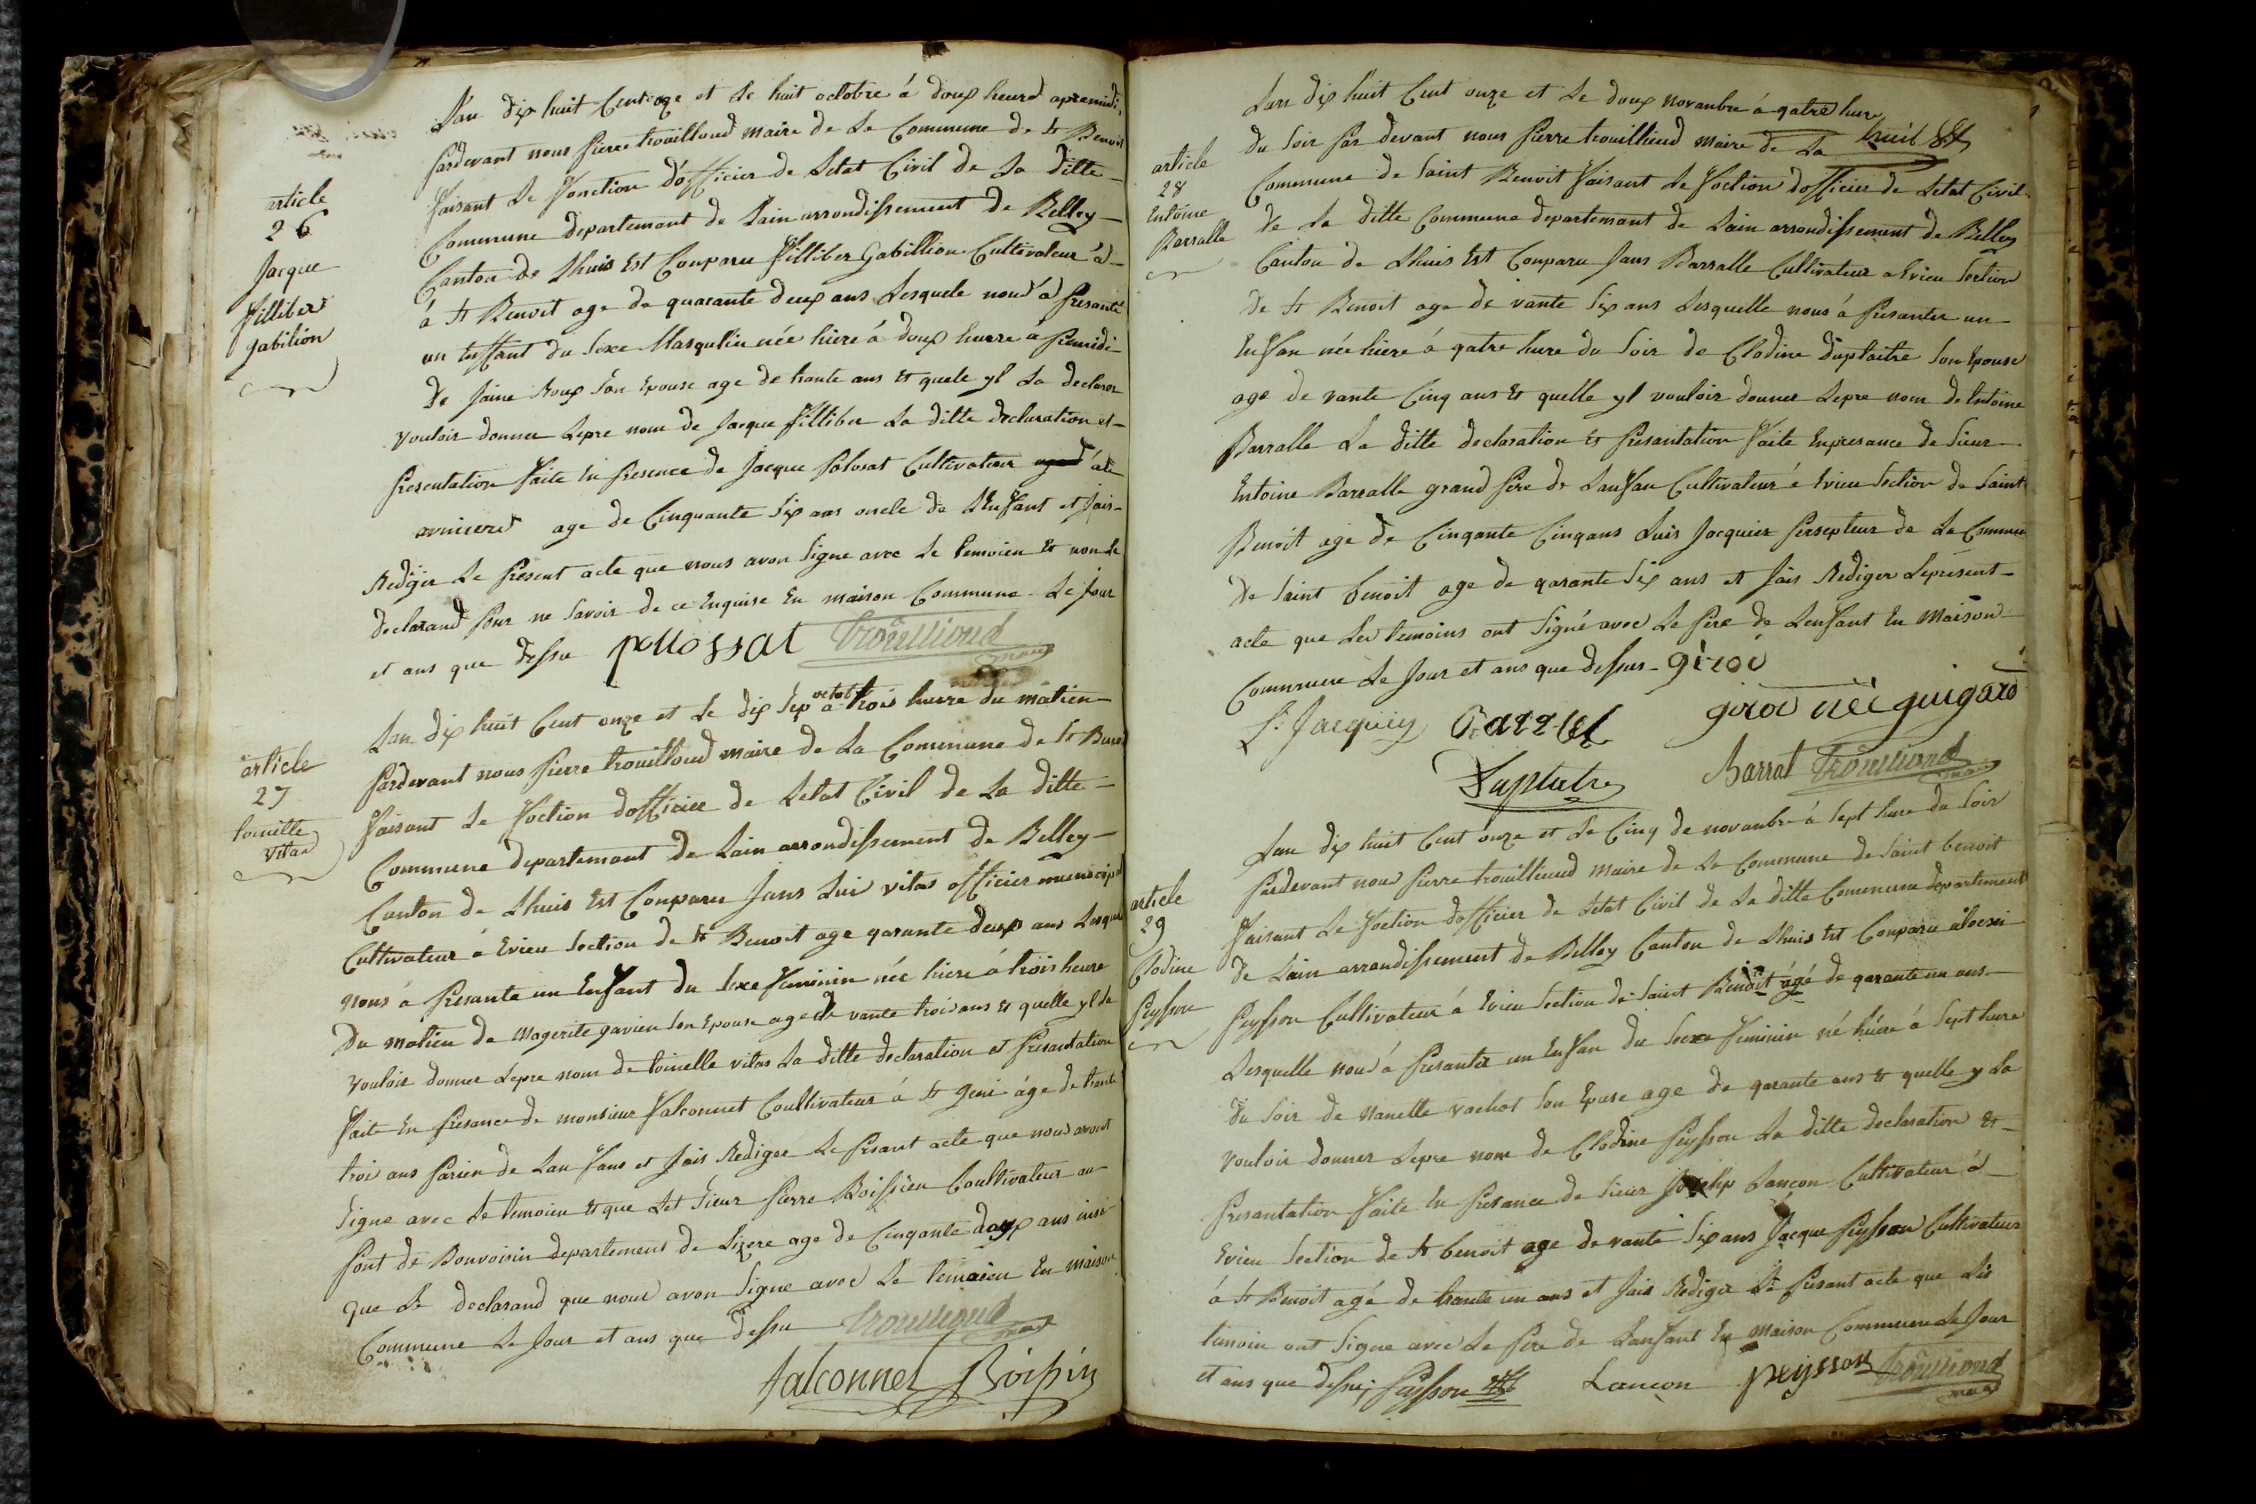 L'an dix huit Cent oze et Le huit octobre á doux heured apremidi,
pardevant nous pierre trouilloud maire de La Commune de St Benoit
faisant Le fonction dofficier de Letat Civil de La ditte
article
26
Jacque
filliber
gabilion
Commune departemant de Lain arrondissement de Belley
Canton de Lhuis Est Conparu filliber Gabillion Cultivateur á
á St Benoit age de quarante deux ans Lesquele nous á presanté
un Enffant du sexe Masqulin née hiere á doux huere á premidi
de Jaine Roux son Epouse age de trante ans Et quele yl La declarer
vouloir donner Lepre nom de Jacque filliber La ditte declaration et
presentation faite En presence de Jacque polosat Cultivateur
age de Cinquante six ans oncle de L'Enfant et Jais
Redijer Le present acte que nous avon signe avec Le temoien Et non Le
declarand pour ne savoir de ce Enquise En maison Commune Le Jour
et ans que dessu pollossat trouilloud
maire
Lan dix huit Cent onze et Le dix sep octob á trois huere du matien
pardevant nous pierre trouilloud maire de La Commune de St Benoit
article
27
toinille
vitas
faisant Le foction dofficier de Letat Civil de La ditte
Commune departemant de Lain arrondissement de Belley
Canton de Lhuis Est Conparu Jans Lui vitas officier municipal
Cultivateur á Evieu section de St Benoit age qarante deux ans Lesquel
nous á presante un Enfant du sexe feminin née hiere á trois heure
du matien de Magerite gavien son Epouse age de vante trois ans Et quelle yl La
vouloir donner Lepre nom de toinelle vitas La ditte declaration et presantation
faite En presance de monsieur falconnet Coultivateur á St geni áge de trante
troi ans parien de Lan fans et Jais Rediger Le presant acte que nous avont
signe avec Le temoien Et que Let sieur pierre Boissieu Coultivateur au
pont de Bonvoisin departement de Lizere age de Cinqante doux ans
que Le declarand que nous avon signe avec Le temoien En maison
Commune Le Jour et ans que dessu trouilloud
maire
falconnet Boissin
Lan dix huit Cent onze et Le doux novanbre á qatre hure
du soir par devant nous pierre trouillioud maire de La
article
28
Entoine
Barralle
Commune de saint Benoit faisant Le foction dofficier de Letat Civil
de La ditte Commune departemant de Lain arrondissement de Belley
Canton de Lhuis Est Conparu Jans Barralle Cultivateur a Evieu section
de St Benoit age de vante six ans Lesquelle nous á presanter un
Enfan née hiere á qatre hure du soir de Clodine duplaitre son Epouse
age de vante Cinq ans Et quelle yl vouloir donner Lepre nom de Entoine
Barralle La ditte declaration Et presantation faite Enpresance de sieur
Entoine Barralle grand pere de Lanfan Cultivateur á Evieu section de saint
Benoit age de Cinqante Cinqans Luis Jacquier persepteur de La Commune
de saint benoit age de qarante six ans et Jais Rediger Lepresent
acte que Les temoins ont signé avec Le pere de Lenfant En Maison
Commune Le Jour et ans que dessus giroi
giroi née guigard
Jacquiey Barral
Duplatre Barral trouilloud
maire
Lan dix huit Cent onze et Le Cinq de novanbre á sept hure du soir
pardevant nous pierre trouillioud maire de La Commune de saint benoit
article
29
Clodine
Peysson
faisant Le foction dofficier de Létat Civil de La ditte Commune departement
de Lain arrondissement de Belley Canton de Lhuis Est Conparu
Peysson Cultivateur á Evieu section de saint Benoit ágé de qarante un ans
Lesquelle nous á presanter un Enfan du sexe feminin né hiére á sept hure
du soir de Nanette vachot son Epouse age de qarante ans Et quelle y La
vouloir donner Lepre nom de Clodine Peysson La ditte declaration Et
presantation faite En presance de sieur Josehp Lancon Cultivateur á
Evieu section de St benoit age de vante six ans Jacque Peysson Cultivateur
á St Benoit agé de trante un ans et Jais Rediger Le presant acte que Les
temoin ont signe avec Le pere de Lanfant En maison Commune Le Jour
et ans que dessu; peysson Lancon peysson trouilloud
maire